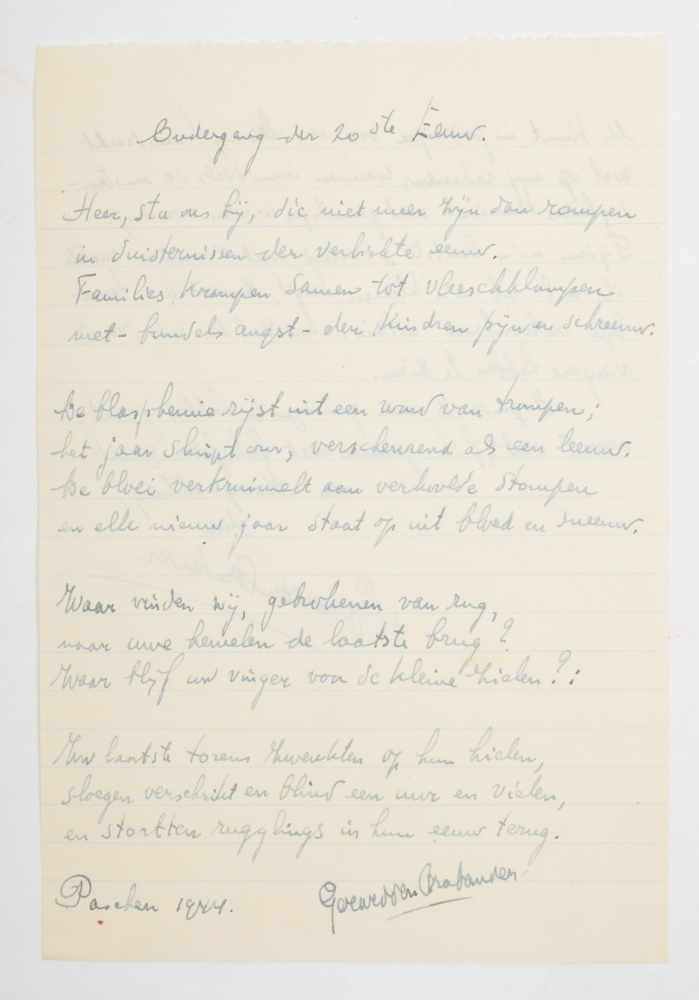 Ondergang der 20ste Eeuw.
Heer, sta ons bij, die niet meer zijn dan rompen
in duisternissen der verlichte eeuw.
Families krompen samen tot vleeschklompen
met - bundels angst - der kindren pijn en schreeuw.
De blasphemie rijst uit een woud van trompen;
het jaar sluipt om, verscheurend als een leeuw.
De bloei verkruimelt aan verkoolde stompen
en elk nieuw jaar staat op uit bloed en sneeuw.
Waar vinden wij, gebrokenen van rug,
naar uwe hemelen de laatste brug?
Waar blijf uw vinger voor de kleine zielen?:
Uw laatste torens zwenkten op hun hielen,
sloegen verschrikt en blind een uur en vielen,
en stortten ruggelings in hun eeuw terug.
Paschen 1944.
Gerard den Brabander